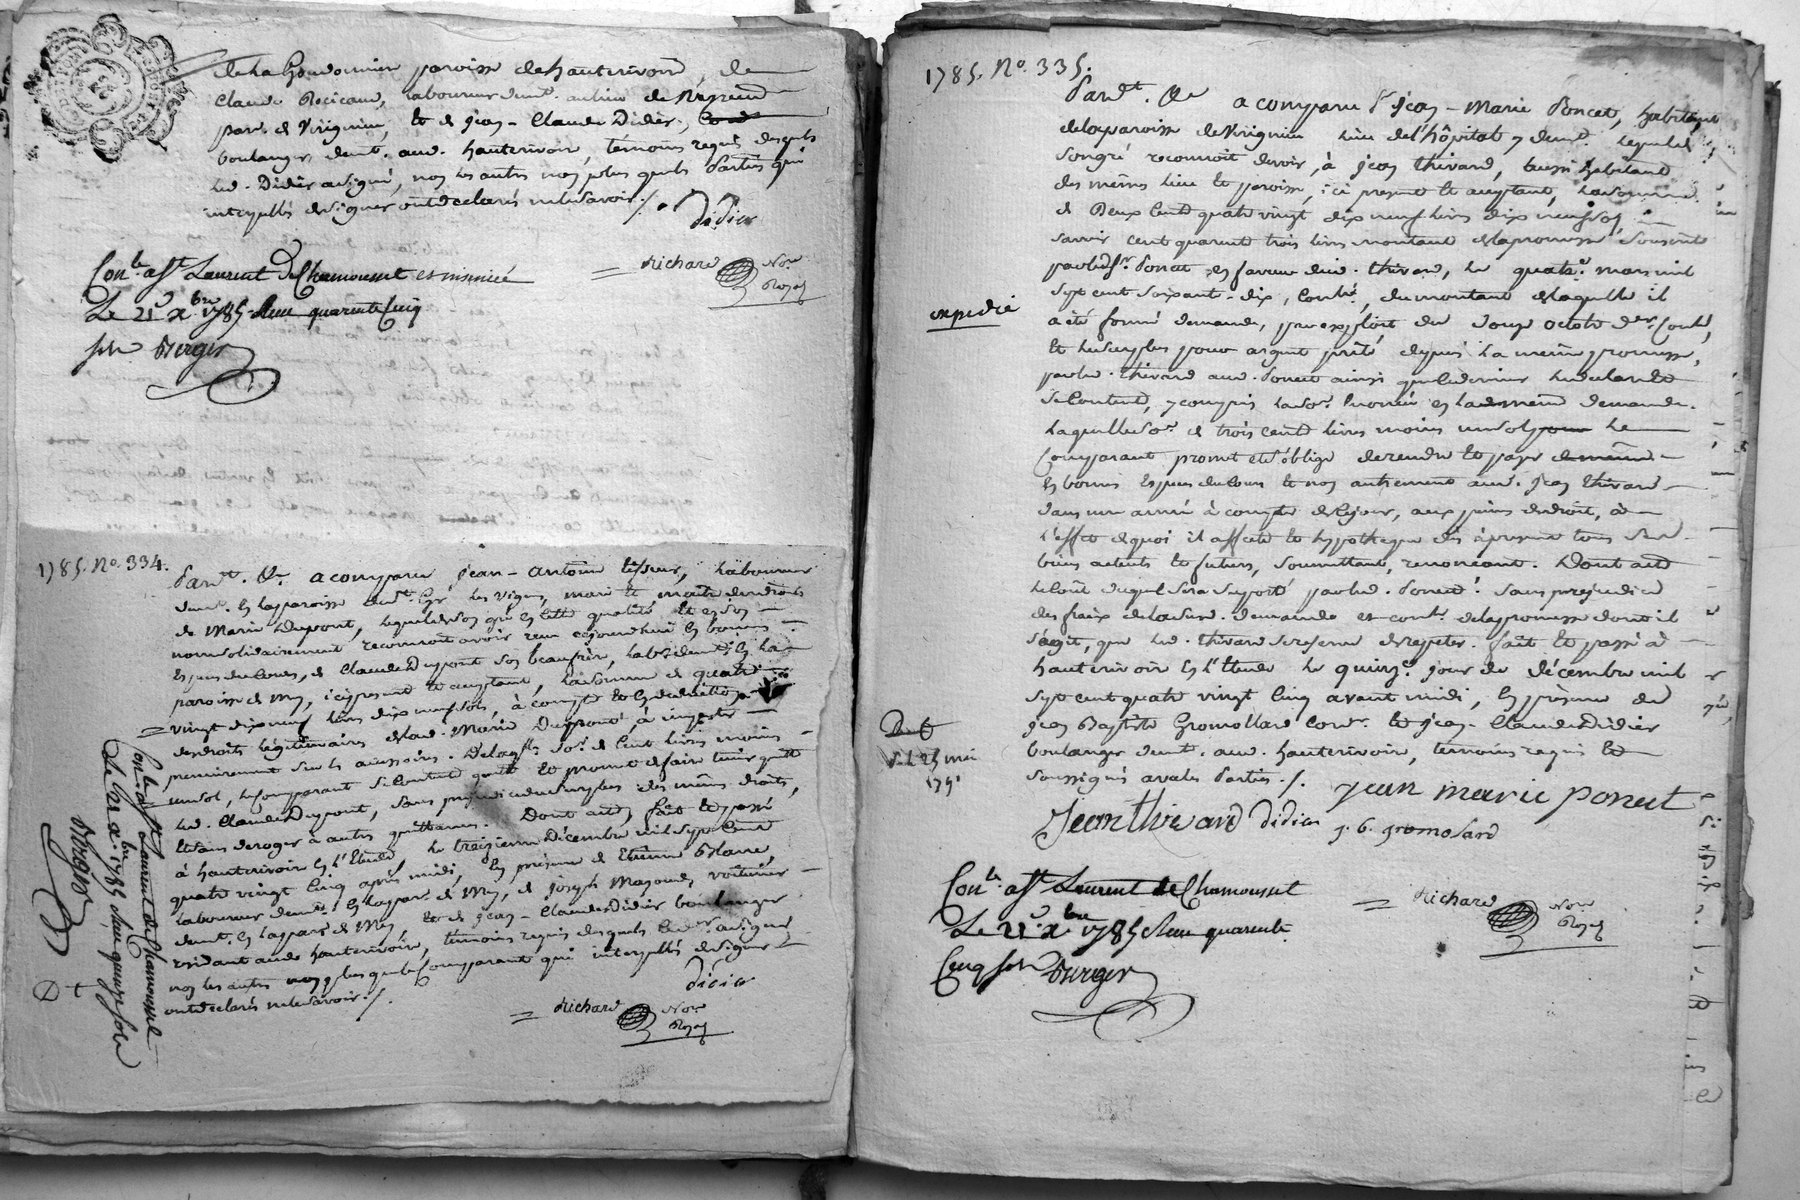 paroisse de hauterivoire, de
Claude laboureur demt. au lieu de
par. de Virignieu, et de jean-Claude Didier,
boulanger demt. aud. hauterivoire, témoins requis desquels
led. Didier a signé, non les autres non plus que les Parties qui
interpellés de signer ont declarés ne le savoir ./.
Didier
Conlé. a St Laurent de Chamousset et insinué
Le 21 Xbre 1785 Reçu quarante Cinq
sols Berger
Richard Nore
Royal
1785. No. 334.
Pardt. &a. a comparu jean-antoine laboureur
demt. en la paroisse de les vignes, mari et maitre des droits
de Marie Dupont, lequel de son gré en cette qualité et en son
nom solidairement reconnoit avoir reçu cejourd'hui en bonnes
Especes de Cours, de Claude Dupont son beaufrère, demt. en la
paroisse de Mey, ici present et acceptant, la somme de quatre
vingt dix neuf livres dix neuf sols, à compte et en deduction
des droits légitimaires de lad. Marie Dupont, à imputer
premierement sur les accessoires. De laqlle. so.e de Cent livres moins
un sol, le Comparant se Contente quitte et promet de faire tenir quitte
led. Claude Dupont, sans prejudice du surplus des mêmes droits,
et sans deroger à autres quittances. Dont acte, fait et passé
à hauterivoire en l'Etude, le treizieme Décembre mil sept Cent
quatre vingt Cinq après midi, en présence de Etienne
laboureur demt. en la par. de Mey, de joseph voiturier
demt. en la par. de Mey, et de jean-Claude Didier boulanger
residant aud. hauterivoire, témoins requis desquels led. Dider. a signé
non les autres non plus que le Comparant qui interpellés de signer
ont declarés ne le savoir ./.
Didier
Richard Nore
Royal
Conlé. a St Laurent de Chamousset
Le 21 Xbre 1785 Reçu quinze sols
Berger
1785. No. 335.
Pardt. &a a comparu Sr jean-Marie Poncet, habitant
de la paroisse de Virignieu lieu de l'hôpital y demt. lequel de
son gré reconnoit devoir, à jean thivard, aussi habitant
des mêmes lieu et paroisse, ici present et acceptant, la somme
de Deux Cent quatre vingt dix neuf livres dix neuf sols
savoir cent quarante trois livres montant de la promesse Souscrite
par led. Sr. Poncet, en faveur dud. thivard, le quatre mars mil
sept cent soixante-dix, Conlé., du montant de laquelle il
a été formé demande, par exploit du douze octobre der. Conlé,
et le surplus pour argent prêté depuis la même promesse,
par led. thivard aud. Poncet ainsi que le dernier le declare et
se Contente, y compris la so.e énoncée en la même demande.
Laquelle so.e de trois cent livres moins un sol le
Comparant promet et s'oblige de rendre et payer
En bonnes Especes de Cours et non autrement aud. jean thivard
dans une année à compter de ce jour, aux peines de droit, à
l'effet de quoi il affecte et hypotheque dès à present tous ses
biens actuels et futurs, soumettant, renonceant. Dont acte
le Coût duquel sera suporté par led. Poncet. Sans prejudice
des fraix de la susd. demande et conle. de la promesse dont il
s'agit, que led. thivard se reserve de repeter. fait et passé à
hauterivoire en l'Etude le quinze. jour de décembre mil
sept cent quatre vingt Cinq avant midi, En présence de
jean Baptiste Gromollard et jean-Claude Didier
boulanger demt. aud. hauterivoire, temoins requis et
soussignés avec les Parties ./.
jean marie poncet
Jean thivard Didier j. b. gromolard
expedié
Dt
25 mai
1791
Conlé. a St Laurent de Chamousset
Le 21 Xbre 1785 Reçu quarante
Cinq sols Berger
Richard Nore
Royal